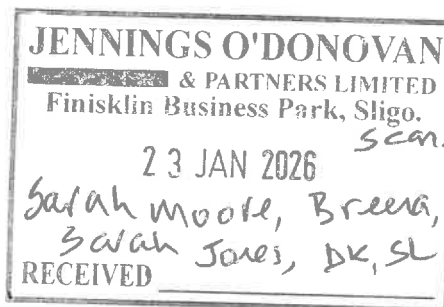 JENNINGS O'DONOVAN
& PARTNERS LIMITED
Finisklin Business Park, Sligo.
Scan.
23 JAN 2026
Sarah Moore, Breena,
Sarah Jones, DK, SL
RECEIVED